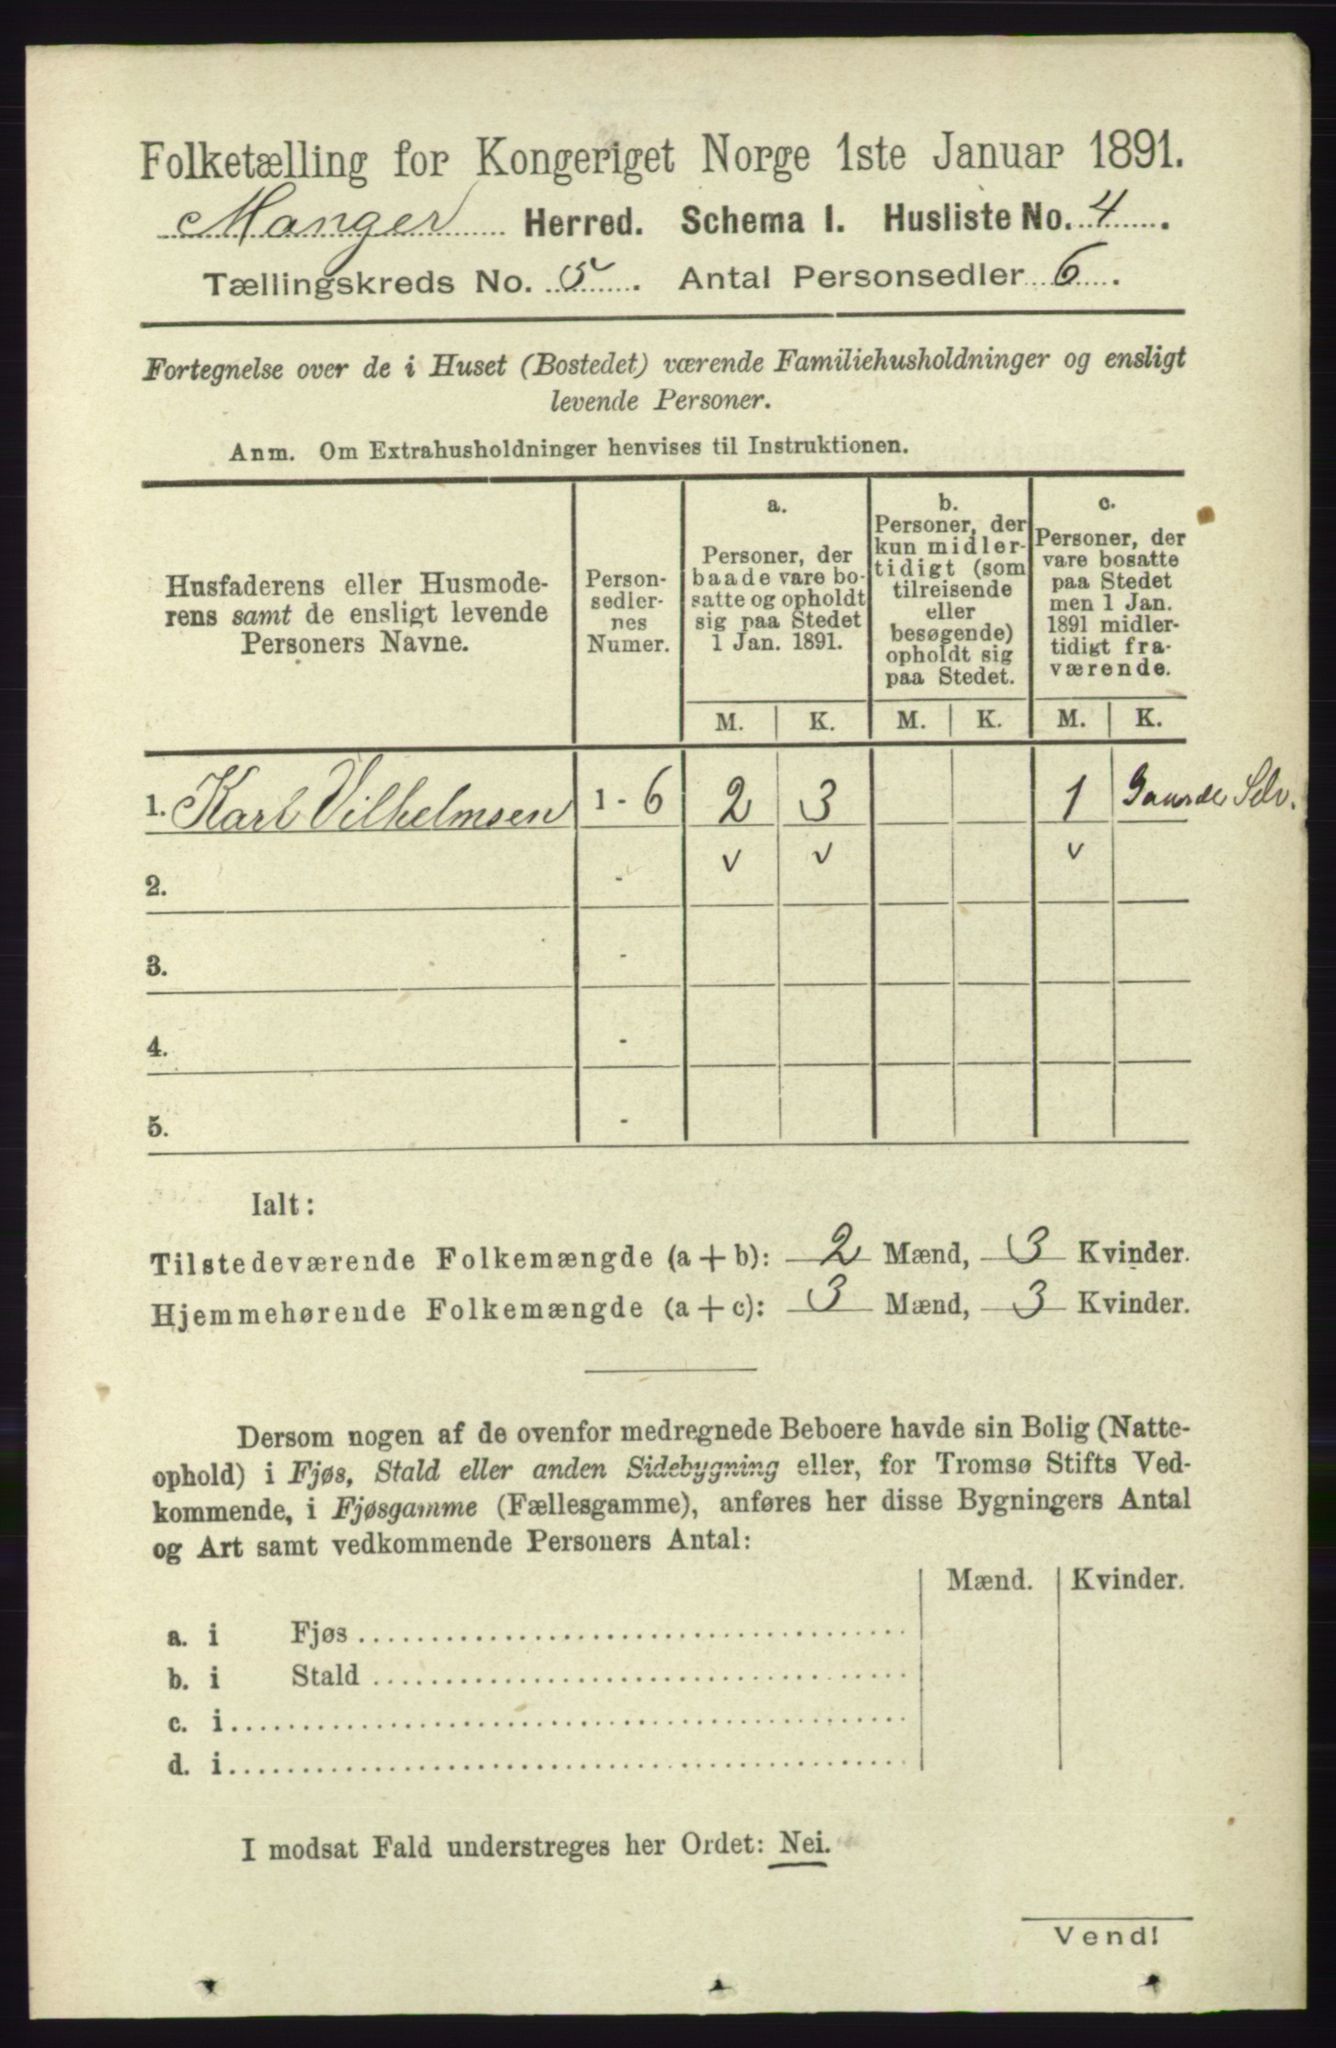 Folketælling for Kongeriget Norge 1ste Januar 1891.
Manger Herred. Schema I. Husliste No. 4.
Tællingskreds No. 5. Antal Personsedler 6.
Fortegnelse over de i Huset (Bostedet) værende Familiehusholdninger og ensligt
levende Personer.
Anm. Om Extrahusholdninger henvises til Instruktionen.
Husfaderens eller Husmode-
rens samt de ensligt levende
Personers Navne.
Person-
sedler-
nes
Numer.
a.
Personer, der
baade vare bo-
satte og opholdt
sig paa Stedet
1 Jan. 1891.
b.
Personer, der
kun midler-
tidigt (som
tilreisende
eller
besøgende)
opholdt sig
paa Stedet.
c.
Personer, der
vare bosatte
paa Stedet
men 1 Jan.
1891 midler-
tidigt fra-
værende.
M. K. M. K. M. K.
1. Karl Vilhelmsen 1 - 6 2 3 1 Selv.
v v v
2. -
3. -
4. -
5. -
Ialt:
Tilstedeværende Folkemængde (a + b): 2 Mænd, 3 Kvinder.
Hjemmehørende Folkemængde (a + c): 3 Mænd, 3 Kvinder.
Dersom nogen af de ovenfor medregnede Beboere havde sin Bolig (Natte-
ophold) i Fjøs, Stald eller anden Sidebygning eller, for Tromsø Stifts Ved-
kommende, i Fjøsgamme (Fællesgamme), anføres her disse Bygningers Antal
og Art samt vedkommende Personers Antal:
Mænd. Kvinder.
a. i Fjøs
b. i Stald
c. i
d. i
I modsat Fald understreges her Ordet: Nei.
Vend!